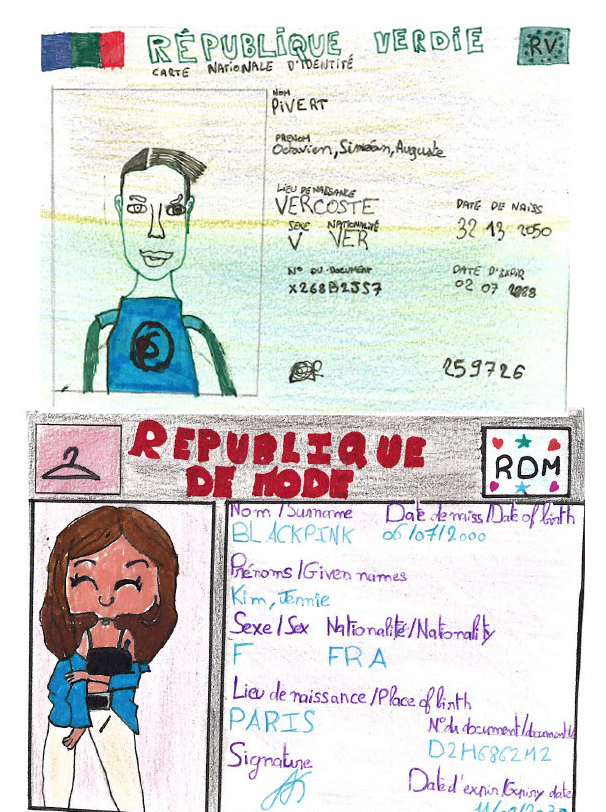 RÉPUBLIQUE VERDIE RV
CARTE NATIONALE D'IDENTITÉ
NOM
PIVERT
PRENOM
Octavien, Siméon, Auguste
LIEU DE NAISSANCE DATE DE NAISS
VERCOSTE 32 13 2050
SEXE NATIONALITÉ
V VER
N° DU DOCUMENT DATE D'EXPIR
X268B2JS7 02 07
259726
REPUBLIQUE
DE MODE
RDM
Nom /Surname Date de niss/Date of birth
BLACKPINK 06/07/2000
Prénoms/Given names
Kim, Jennie
Sexe/Sex Nationalité/Nationality
F FRA
Lieu de naissance/Place of birth
PARIS N° du document/document N
Signature D2H6862M2
Date d'expir/Expiry date